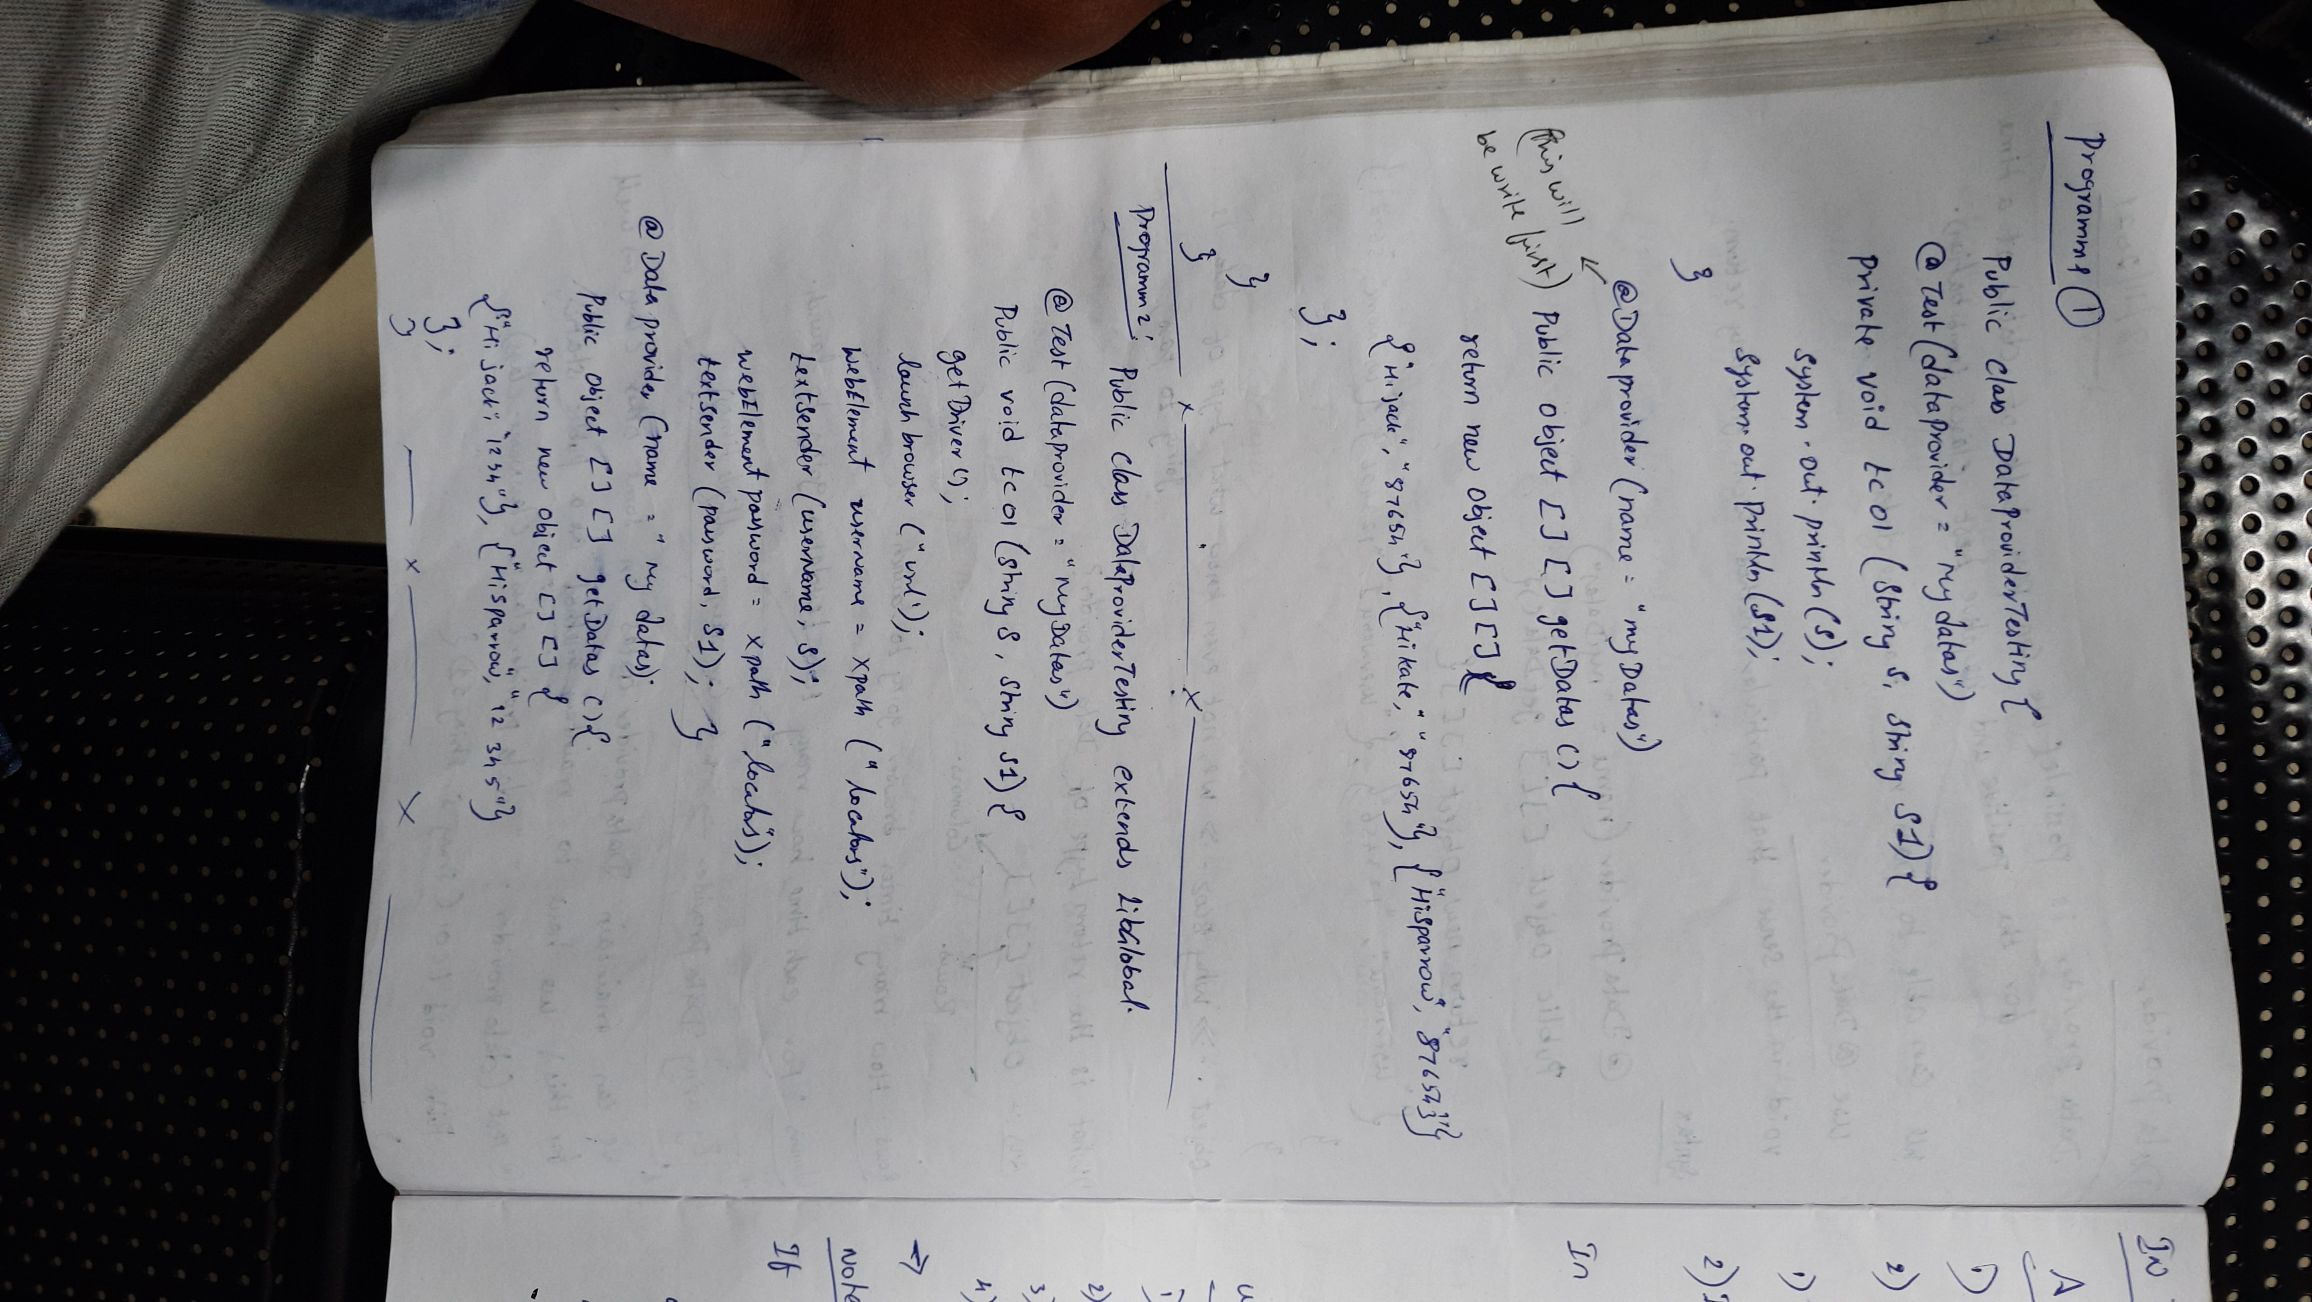 Programme ①
Public class DataproviderTesting {
@Test (dataprovider = "mydatas")
Private void tc01 (String S, String S1) {
System.out.println(S);
System.out.println(S1);
}
@Dataprovider (name = "myDatas")
(this will
be write first)
Public object [] [] getDatas () {
return new object [] [] {
{"Hijack", "87654"}, {"Hikate," "87654"}, {"Hisparrow", "87654"}
};
}
}
Programm 2: Public class DataproviderTesting extends LibGlobal.
@Test (dataprovider = "myDatas")
Public void tc01 (String S, String S1) {
getDriver();
launhbrowser ("url");
WebElement username = xpath ("locators");
textsender (username, S);
webElement password = xpath ("locators");
textsender (password, S1); }
@Dataprovider (name = "my datas);
Public object [] [] getDatas () {
return new object [] [] {
{"Hi jack, "1234"}, {"Hisparrow", "12345"}
};
}
In
A
1)
2)
1)
2)
In
4)
3)
2)
Note
If